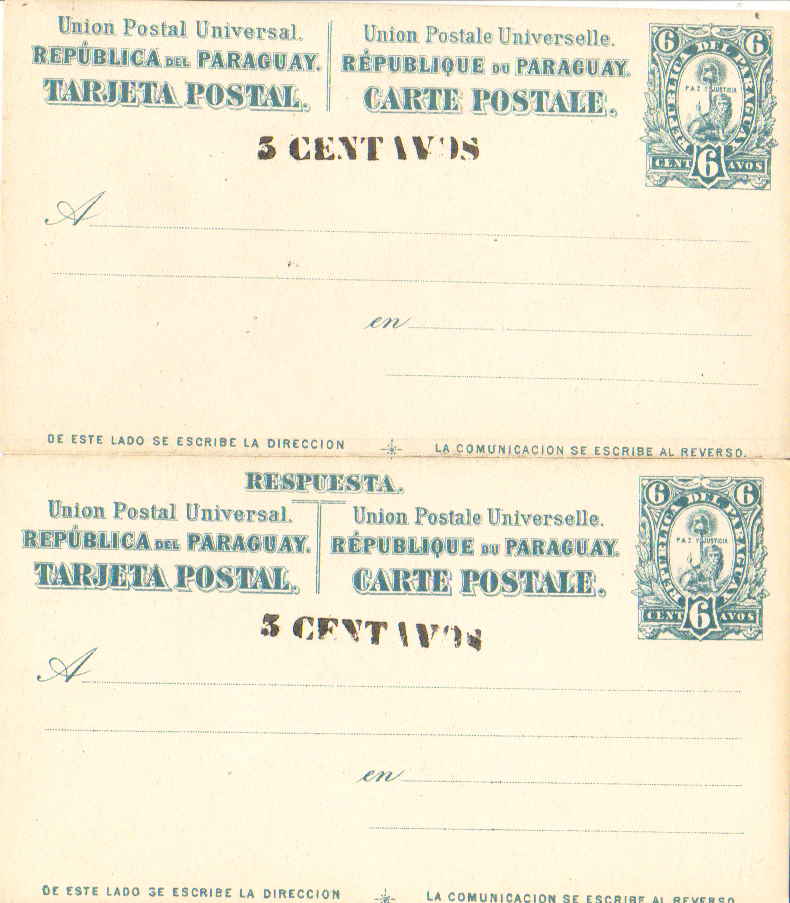 Union Postal Universal.
REPÚBLICA DEL PARAGUAY.
TARJETA POSTAL.
Union Postale Universelle.
RÉPUBLIQUE DU PARAGUAY.
CARTE POSTALE.
6 6
REPUBLICA DEL PARAGUAY
PAZ Y JUSTICIA
CENT 6 AVOS
5 CENTAVOS
A
en
DE ESTE LADO SE ESCRIBE LA DIRECCION
LA COMUNICACION SE ESCRIBE AL REVERSO.
RESPUESTA.
Union Postal Universal.
REPÚBLICA DEL PARAGUAY.
TARJETA POSTAL.
Union Postale Universelle.
RÉPUBLIQUE DU PARAGUAY.
CARTE POSTALE.
6 6
REPUBLICA DEL PARAGUAY
PAZ Y JUSTICIA
CENT 6 AVOS
5 CENTAVOS
A
en
DE ESTE LADO SE ESCRIBE LA DIRECCION
LA COMUNICACION SE ESCRIBE AL REVERSO.